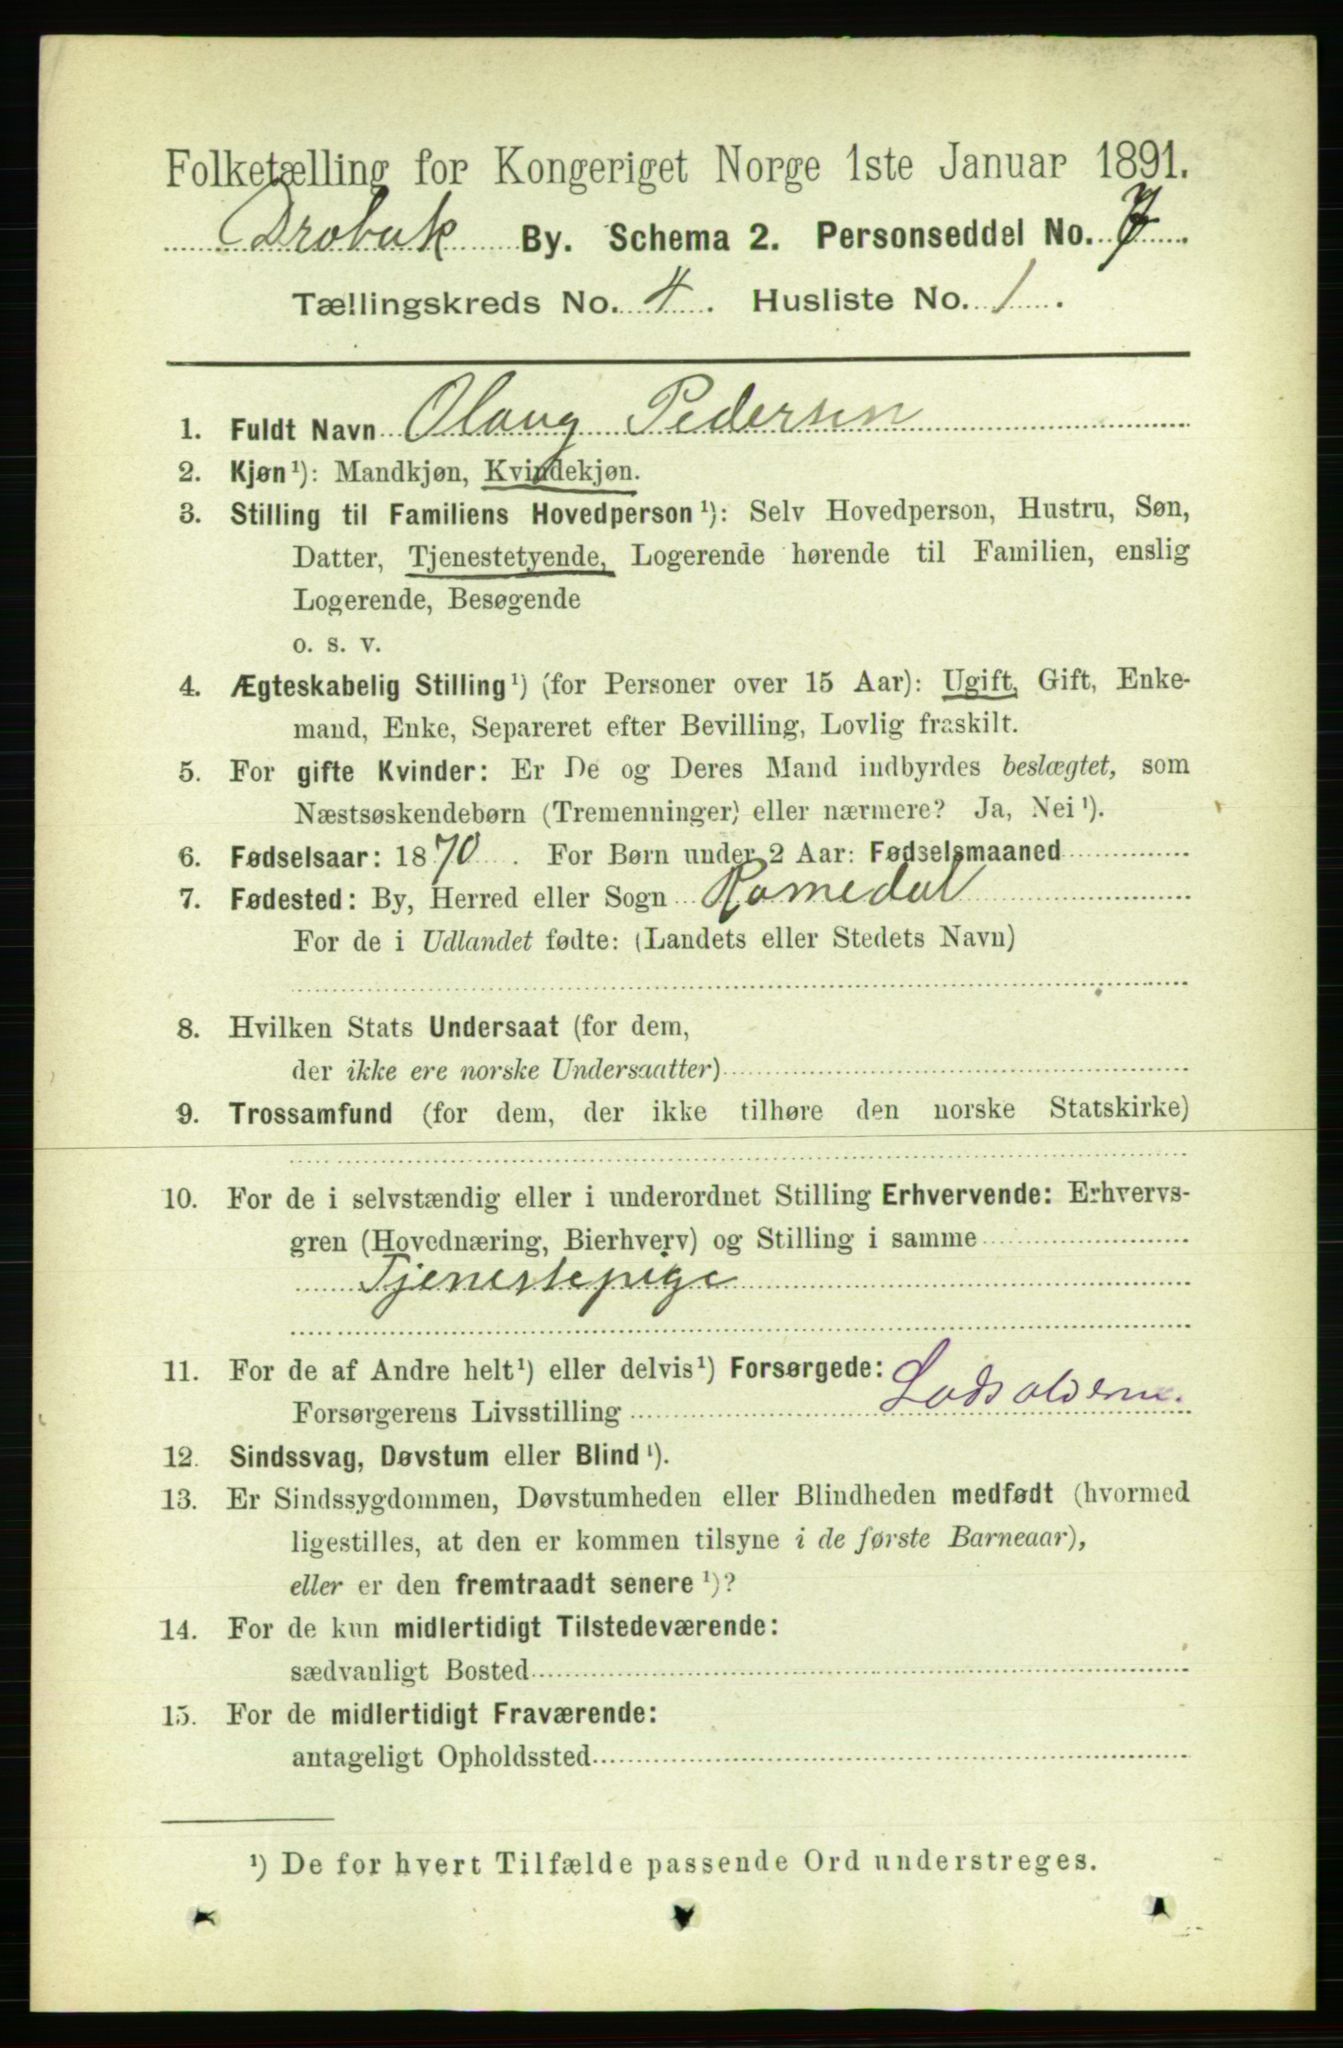 Folketælling for Kongeriget Norge 1ste Januar 1891.
Drøbak By. Schema 2. Personseddel No. 7
Tællingskreds No. 4. Husliste No. 1.
1. Fuldt Navn Olaug Pedersen
2. Kjøn¹): Mandkjøn, Kvindekjøn.
3. Stilling til Familiens Hovedperson¹): Selv Hovedperson, Hustru, Søn,
Datter, Tjenestetyende, Logerende hørende til Familien, enslig
Logerende, Besøgende
o. s. v.
4. Ægteskabelig Stilling¹) (for Personer over 15 Aar): Ugift, Gift, Enke-
mand, Enke, Separeret efter Bevilling, Lovlig fraskilt.
5. For gifte Kvinder: Er De og Deres Mand indbyrdes beslægtet, som
Næstsøskendebørn (Tremenninger) eller nærmere? Ja, Nei¹).
6. Fødselsaar: 1870. For Børn under 2 Aar: Fødselsmaaned
7. Fødested: By, Herred eller Sogn Romedal
For de i Udlandet fødte: (Landets eller Stedets Navn)
8. Hvilken Stats Undersaat (for dem,
der ikke ere norske Undersaatter)
9. Trossamfund (for dem, der ikke tilhøre den norske Statskirke)
10. For de i selvstændig eller i underordnet Stilling Erhvervende: Erhvervs-
gren (Hovednæring, Bierhverv) og Stilling i samme
Tjenestepige
11. For de af Andre helt¹) eller delvis¹) Forsørgede:
Forsørgerens Livsstilling Lodsolderm.
12. Sindssvag, Døvstum eller Blind¹).
13. Er Sindssygdommen, Døvstumheden eller Blindheden medfødt (hvormed
ligestilles, at den er kommen tilsyne i de første Barneaar),
eller er den fremtraadt senere¹)?
14. For de kun midlertidigt Tilstedeværende:
sædvanligt Bosted
15. For de midlertidigt Fraværende:
antageligt Opholdssted
¹) De for hvert Tilfælde passende Ord understreges.